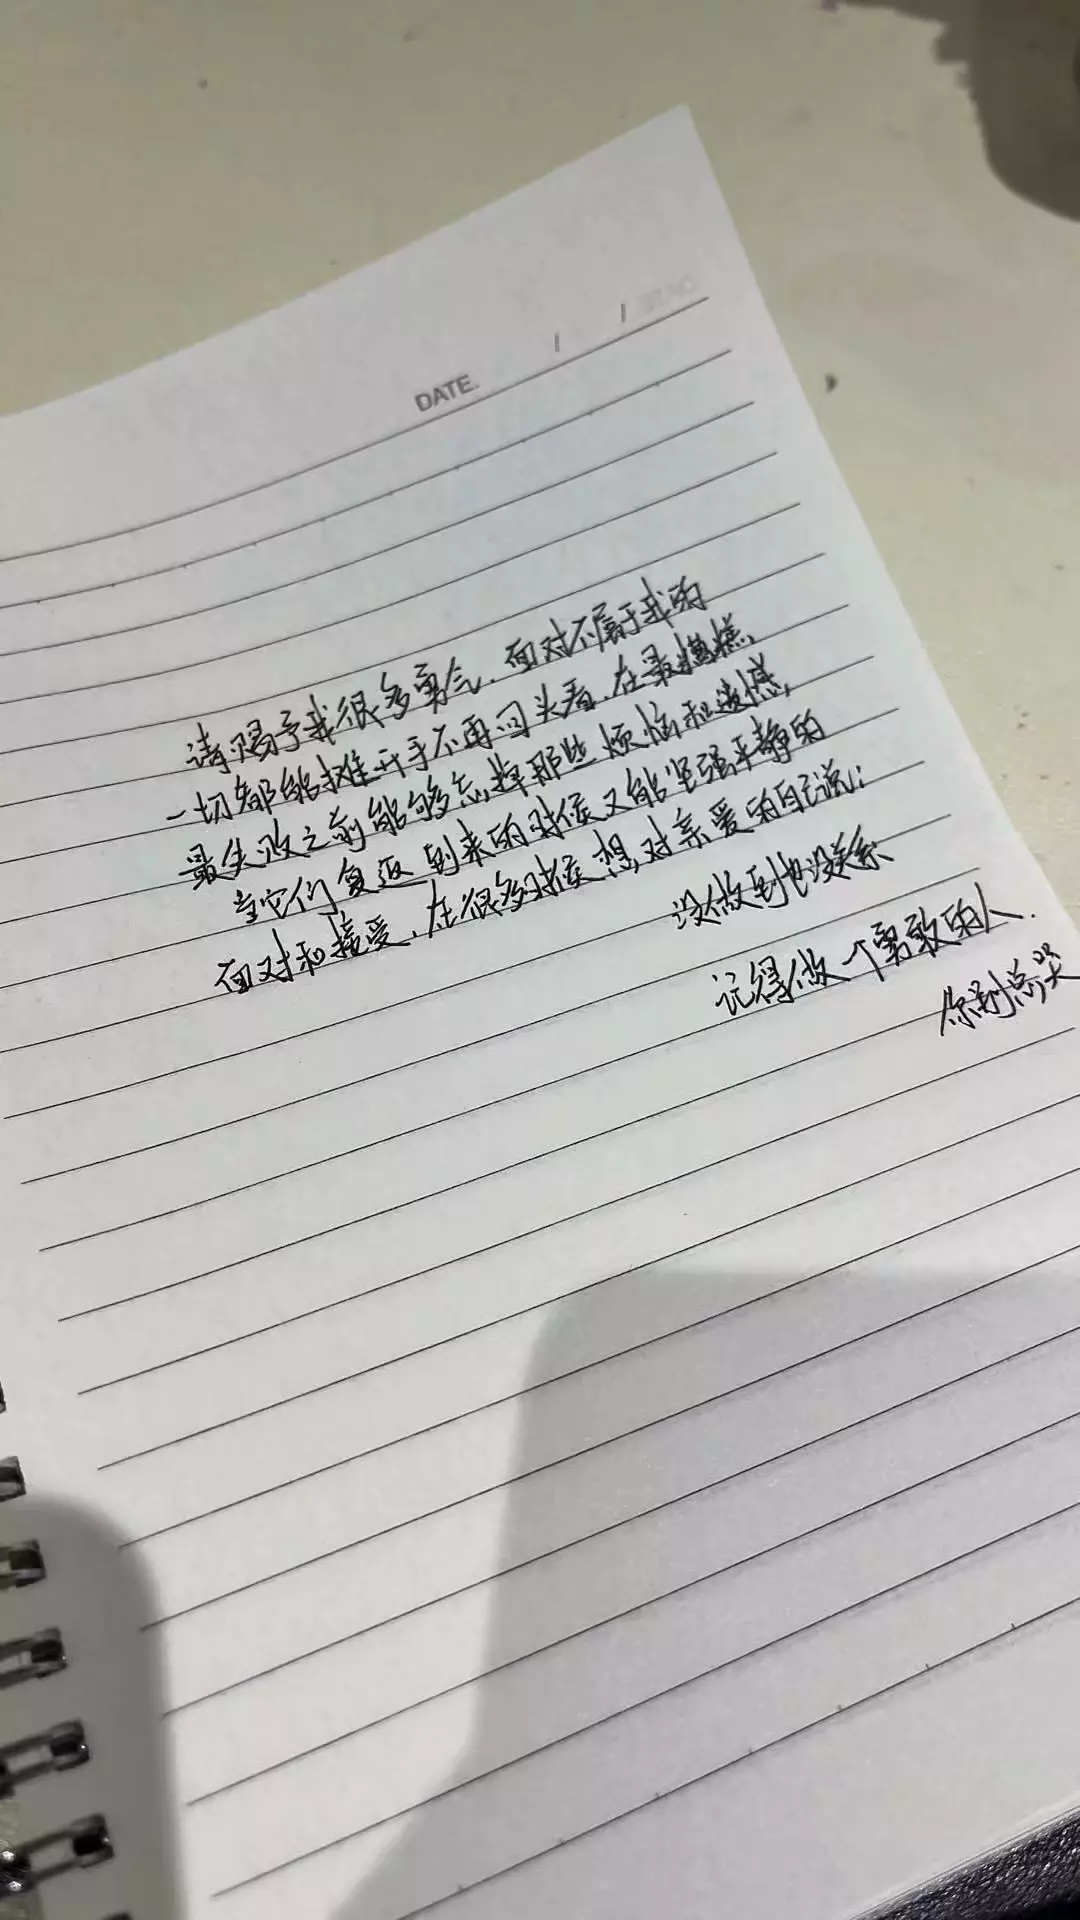 DATE. / /
请赐予我很多勇气、面对不属于我的
一切都能摊开手不再回头看、在最糟糕
最失败之前能够忘掉那些烦恼和遗憾、
当它们复返到来的时候又能坚强平静的
面对和接受、在很多时候想对亲爱的自己说：
没做到也没关系
记得做一个勇敢的人.
你别总哭